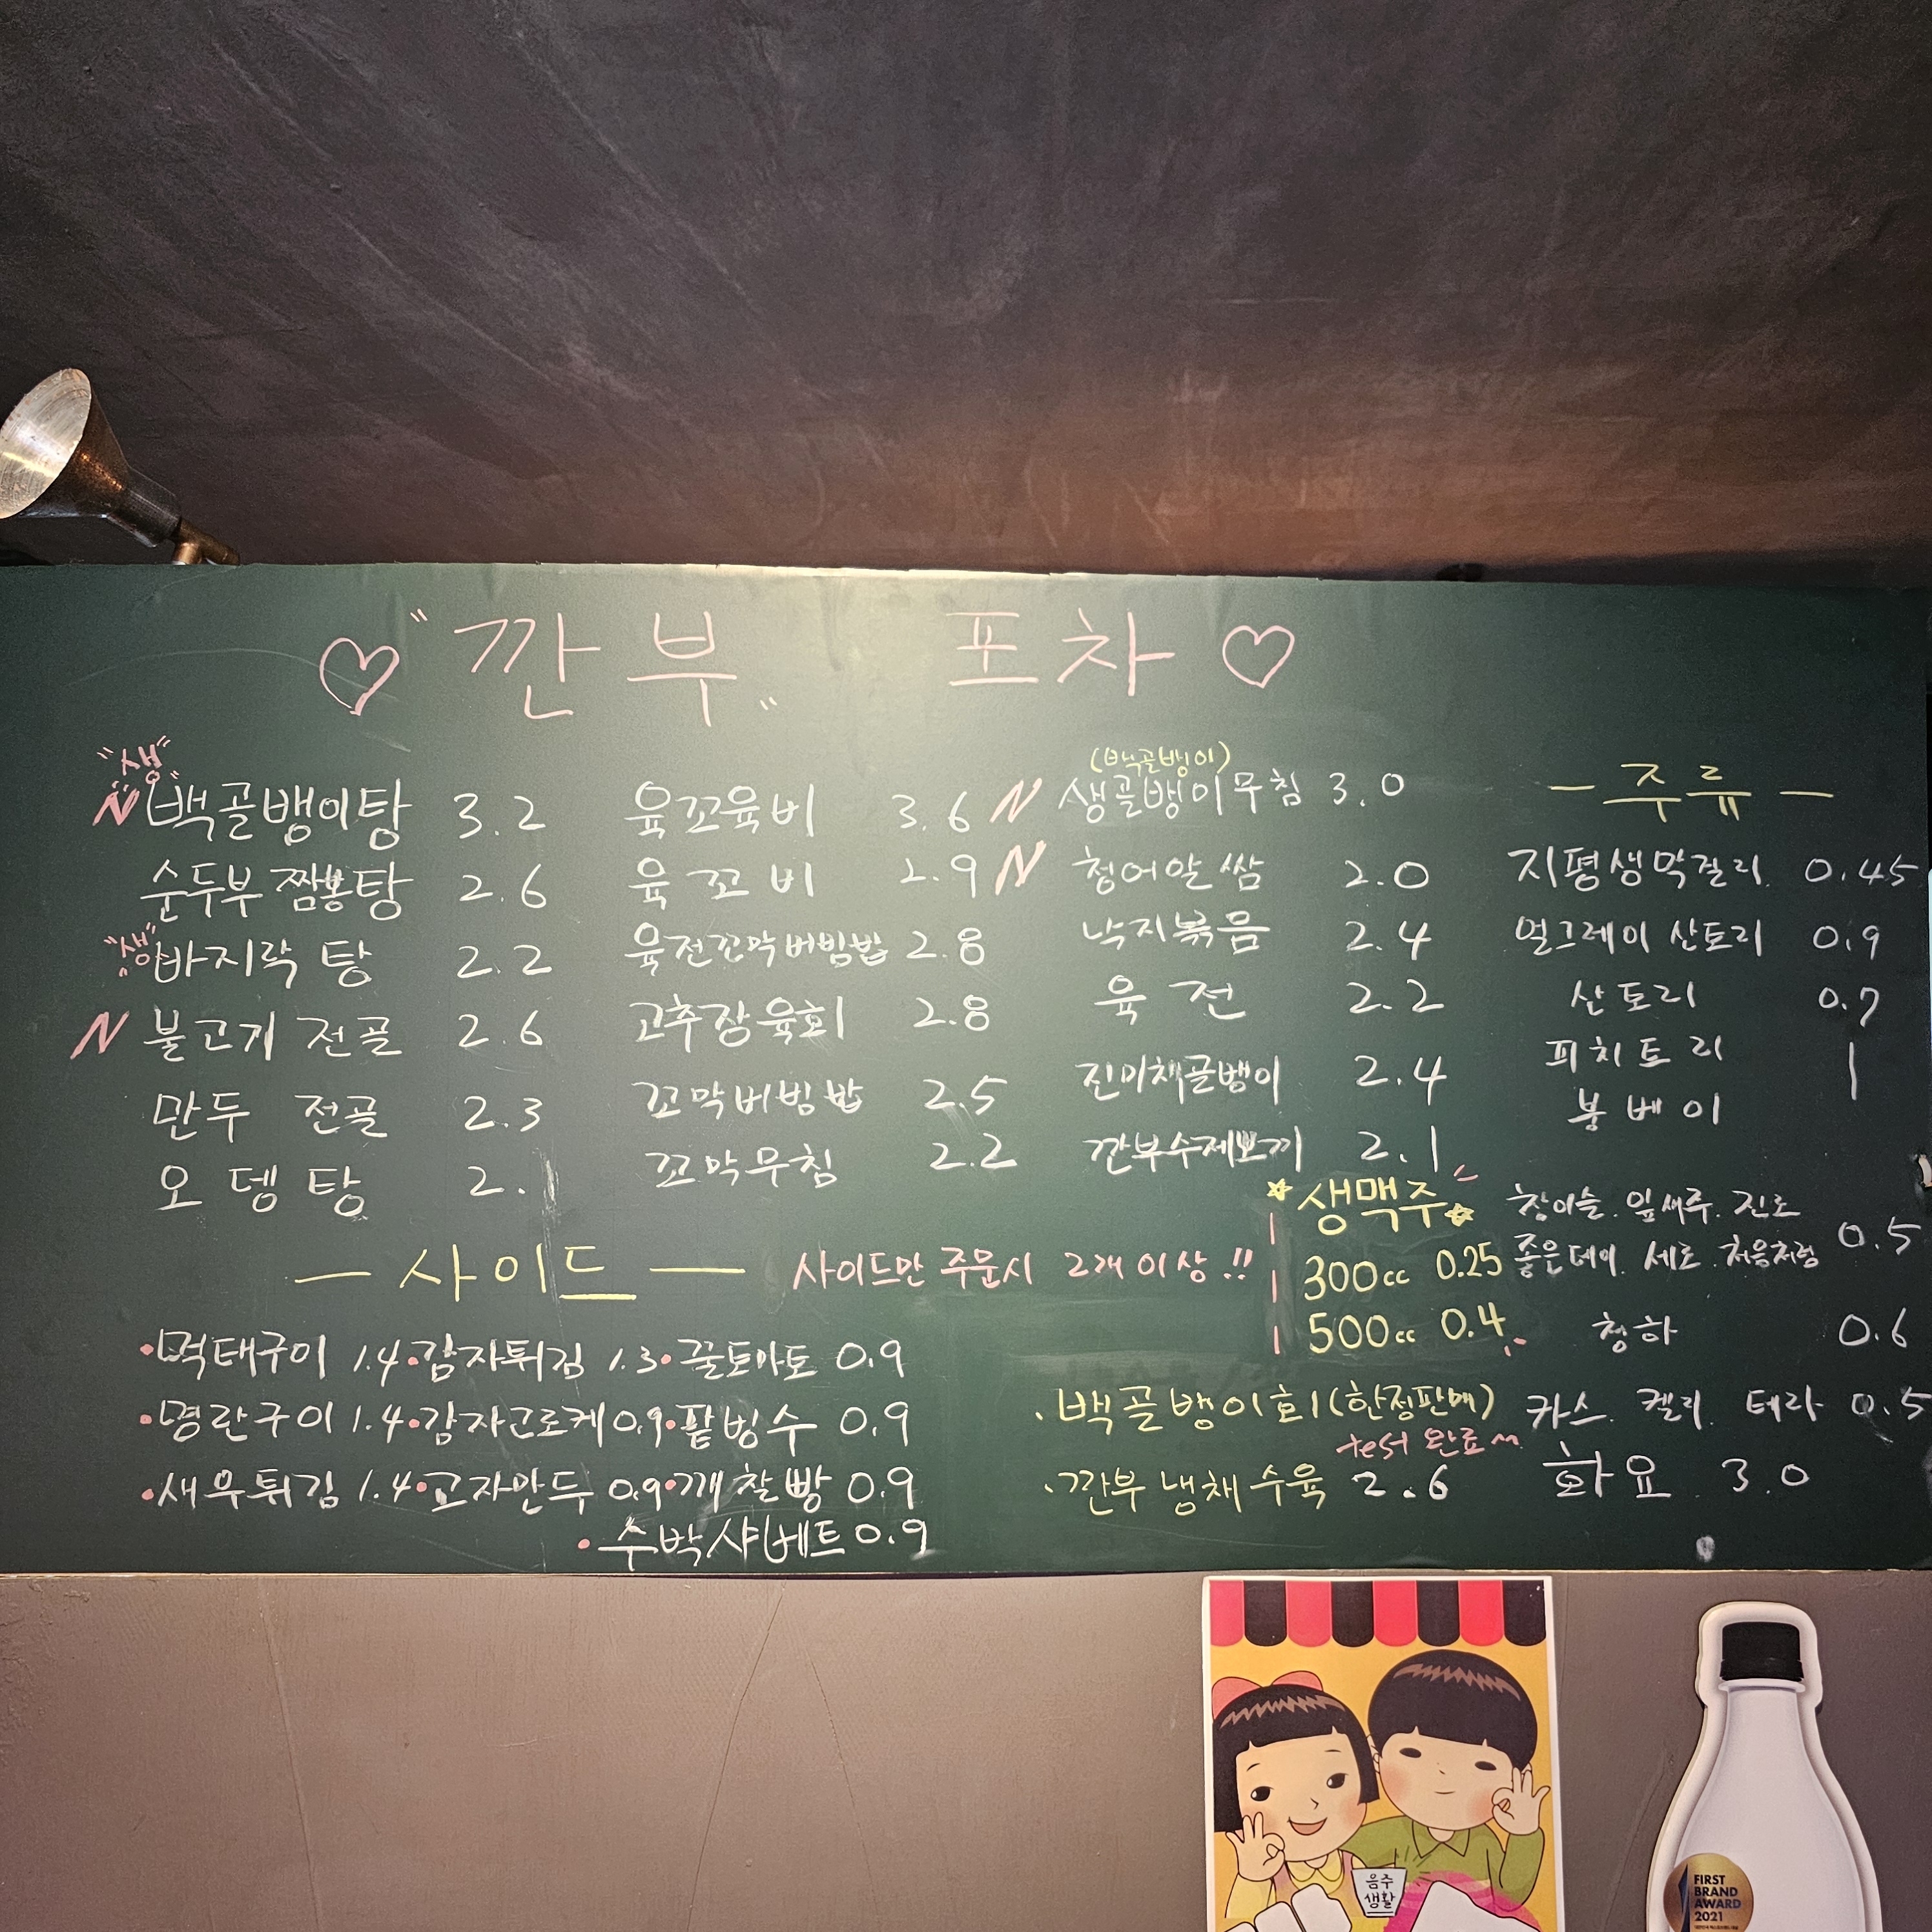 ♡ "깐부" 포차 ♡
"생"
N 백골뱅이탕 3.2
순두부짬뽕탕 2.6
"생" 바지락탕 2.2
N 불고기 전골 2.6
만두 전골 2.3
오뎅탕 2.
육꼬육비 3.6
육꼬비 2.9
육전꼬막비빔밥 2.8
고추장육회 2.8
꼬막비빔밥 2.5
꼬막무침 2.2
(백골뱅이)
N 생골뱅이무침 3.0
N 청어알쌈 2.0
낙지볶음 2.4
육전 2.2
진미채골뱅이 2.4
깐부수제뽀끼 2.1
- 주류 -
지평생막걸리 0.45
얼그레이 산토리 0.9
산토리 0.7
피치트리
봉베이 1
참이슬. 잎새주. 진로
좋은데이. 새로. 처음처럼 0.5
청하 0.6
카스. 켈리. 테라 0.5
화요 3.0
☆생맥주☆
300cc 0.25
500cc 0.4
· 백골뱅이회 (한정판매)
test 완료
· 깐부냉채수육 2.6
- 사이드 - 사이드만 주문시 2개 이상!!
•먹태구이 1.4 •감자튀김 1.3 •꿀토마토 0.9
•명란구이 1.4 •감자고로케 0.9 •팥빙수 0.9
•새우튀김 1.4 •교자만두 0.9 •깨찰빵 0.9
•수박샤베트 0.9
음주
생활
FIRST
BRAND
AWARD
2021